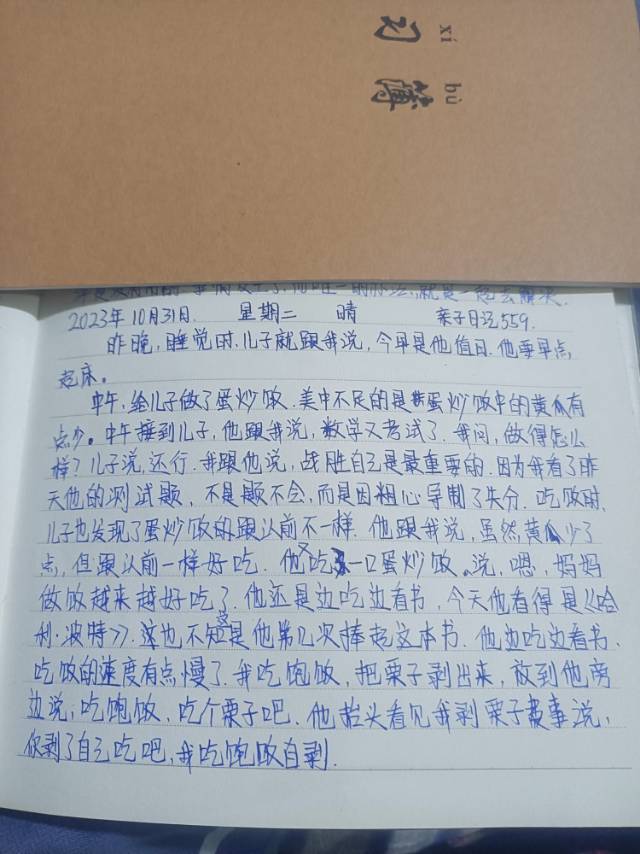 xí bù
习 簿
事情发生了,而唯一的办法,就是一起去解决.
2023年10月31日. 星期二 晴 亲子日记559.
昨晚,睡觉时,儿子就跟我说,今早是他值日.他要早点
起床。
中午,给儿子做了蛋炒饭.美中不足的是蛋炒饭中的黄瓜有
点少。中午接到儿子,他跟我说,数学又考试了.我问,做得怎么
样?儿子说,还行.我跟他说,战胜自己是最重要的.因为我看了昨
天他的测试题,不是题不会,而是因粗心导制了失分.吃饭时,
儿子也发现了蛋炒饭的跟以前不一样.他跟我说,虽然黄瓜少了
点,但跟以前一样好吃.他又吃一口蛋炒饭。说,嗯,妈妈
做饭越来越好吃了.他还是边吃边看书,今天他看得是《哈
利·波特》.这也不知这是他第几次捧起这本书.他边吃边看书,
吃饭的速度有点慢了.我吃饱饭,把栗子剥出来,放到他旁
边说,吃饱饭,吃个栗子吧.他抬头看见我剥栗子费事说,
你剥了自己吃吧,我吃饱饭自剥.